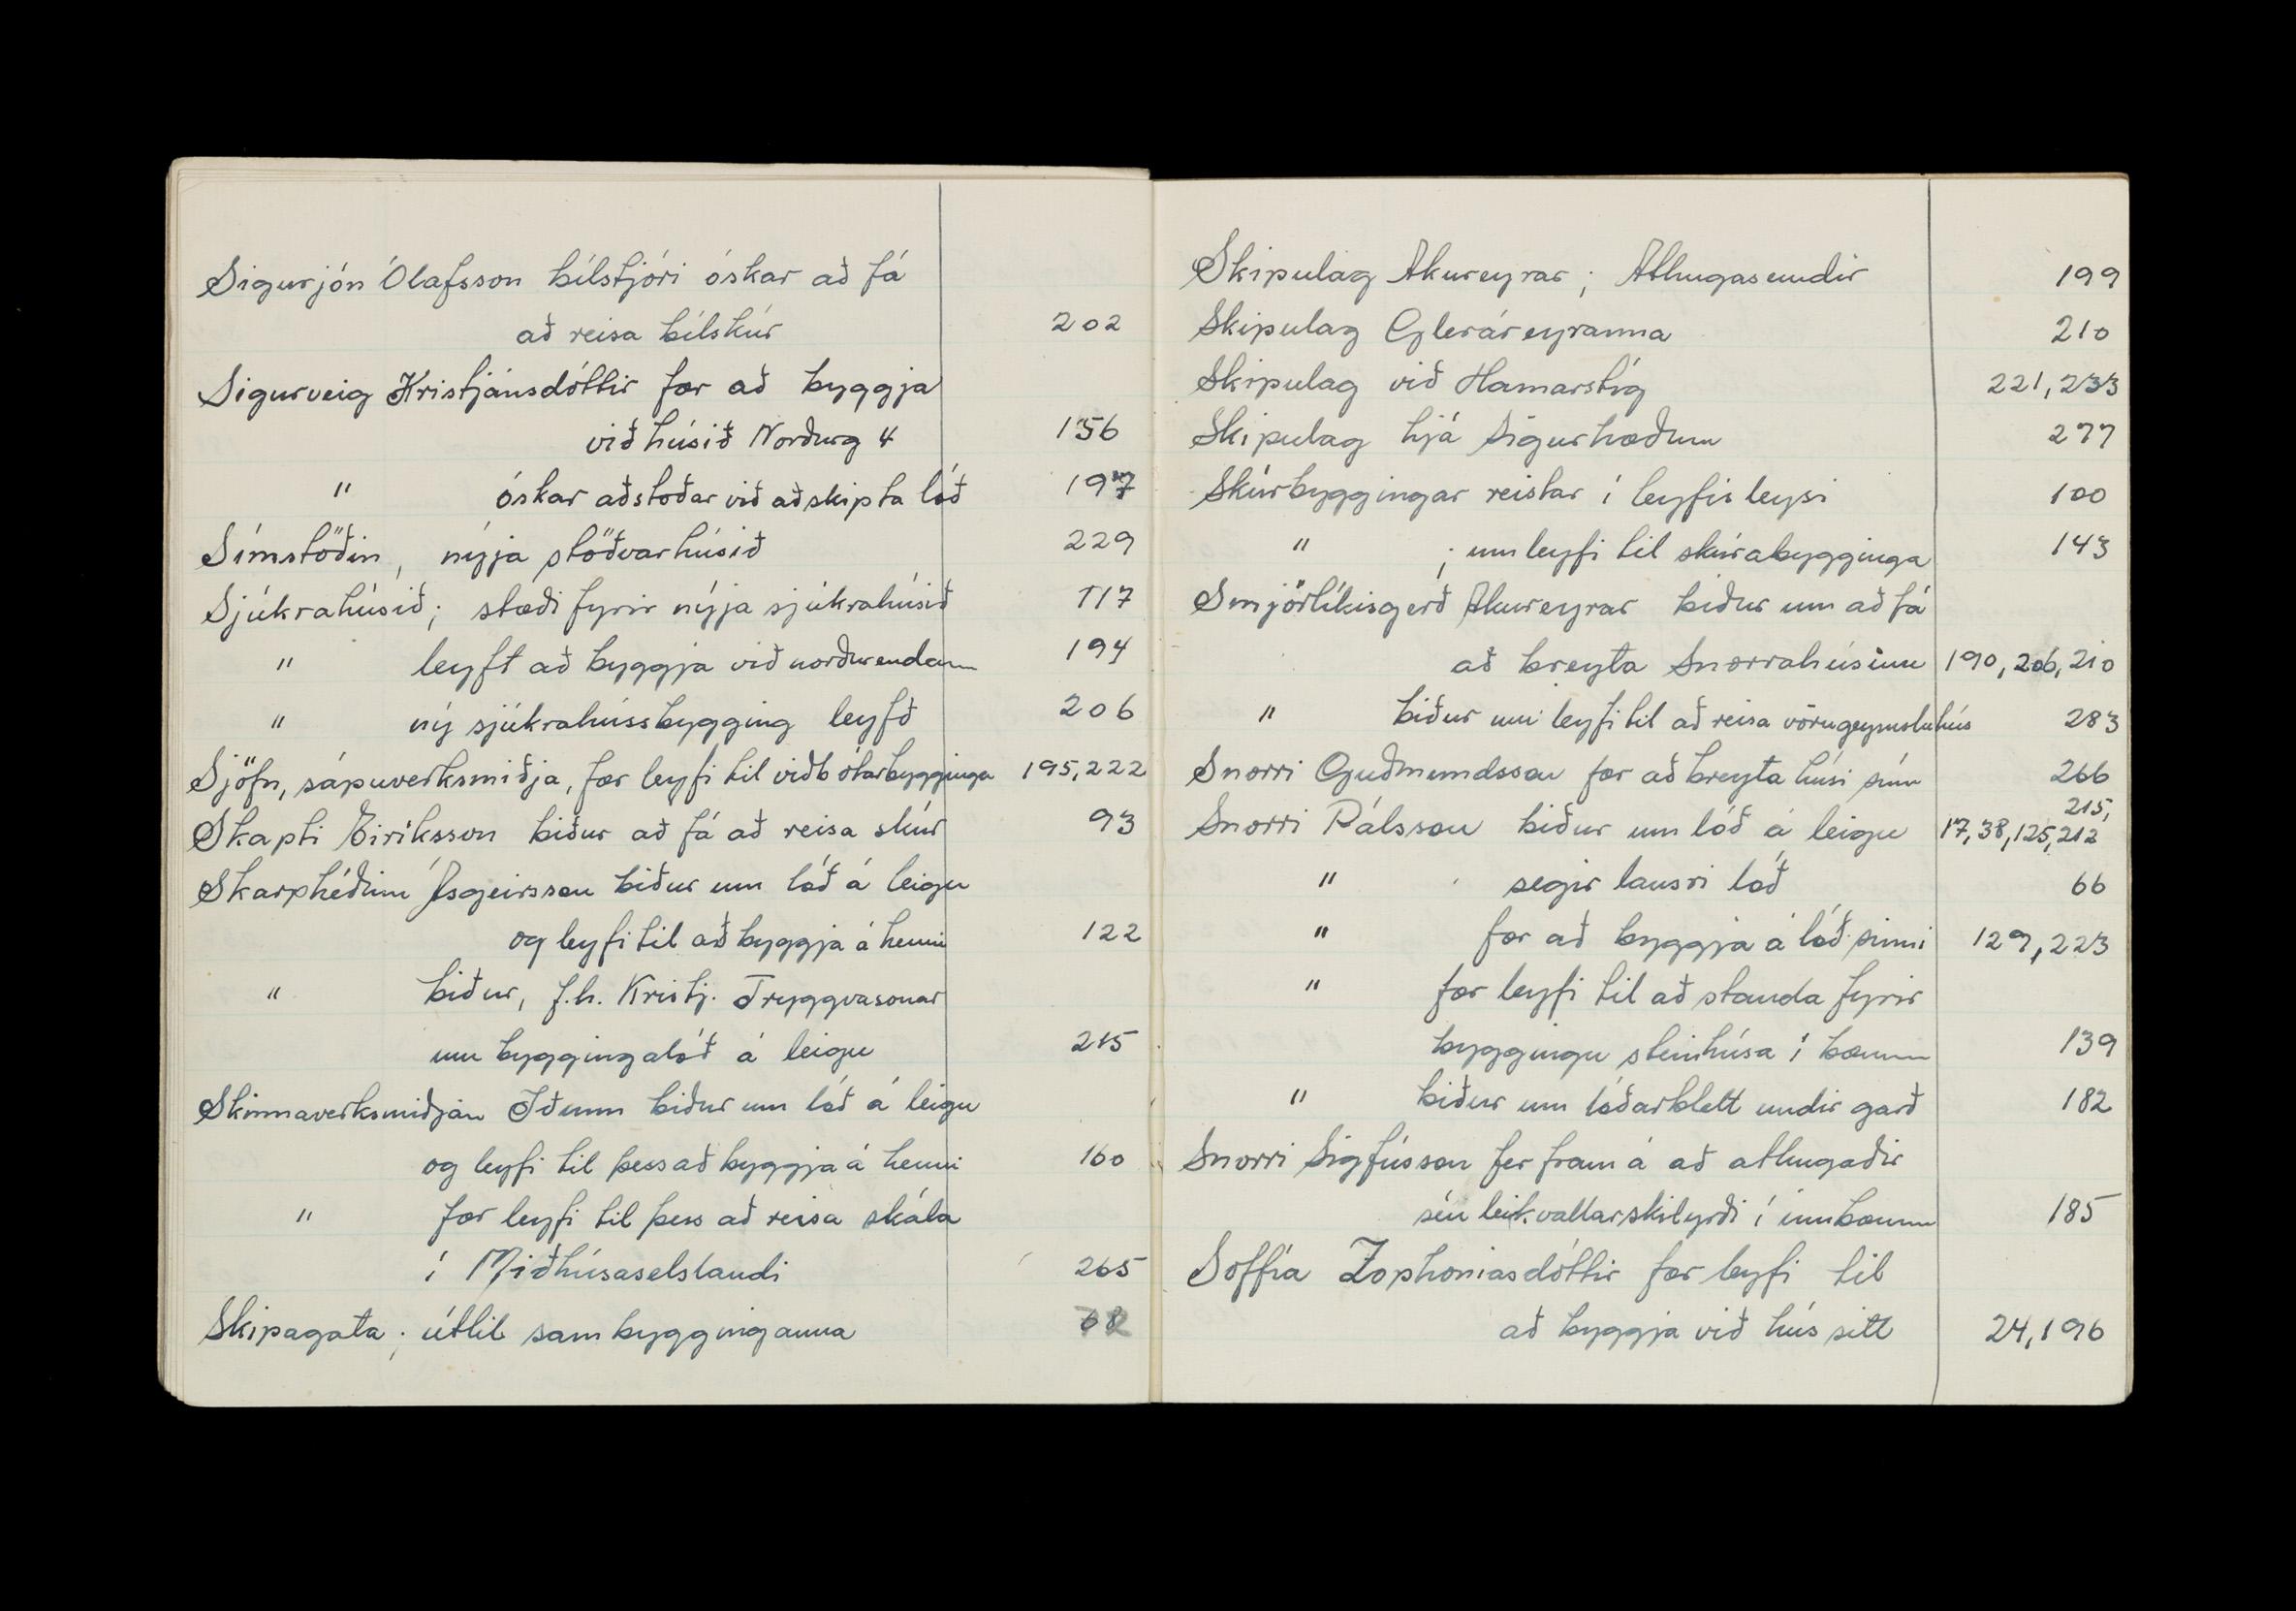 Sigurjón Ólafsson bílstjóri óskar að fá
að reisa bílskúr 202
Sigurveig Kristjánsdóttir fær að byggja
við húsið Norðurg 4 156
" óskar aðstoðar við að skipta lóð 197
Símstöðin, nýja stöðvarhúsið 229
Sjúkrahúsið; stæði fyrir nýja sjúkrahúsið 117
" leyft að byggja við norðurendann 194
" ný sjúkrahússbygging leyfð 206
Sjöfn, sápuverksmiðja, fær leyfi til viðbótarbygginga 195,222
Skapti Eiríksson biður að fá að reisa skúr 93
Skarphéðinn Ásgeirsson biður um lóð á leigu
og leyfi til að byggja á henni 122
" biður, f.h. Kristj. Tryggvasonar
um byggingalóð á leigu 215
Skinnaverksmiðjan Iðunn biður um lóð á leigu
og leyfi til þess að byggja á henni 160
" fær leyfi til þess að reisa skála
í Miðhúsaselslandi 265
Skipagata; útlit sambygginganna
Skipulag Akureyrar; Athugasemdir 199
Skipulag Gleráreyranna 210
Skipulag við Hamarstíg 221,233
Skipulag hjá Sigurhæðum 277
Skúrbyggingar reistar í leyfisleysi 100
" ; um leyfi til skúrabygginga 143
Smjörlíkisgerð Akureyrar biður um að fá
að breyta Snorrahúsinu 190, 206, 210
" biður um leyfi til að reisa vörugeymsluhús 283
Snorri Guðmundsson fær að breyta húsi sínu 266
215,
Snorri Pálsson biður um lóð á leigu 17,38,125,212
" segir lausri lóð 66
" fær að byggja á lóð sinni 129,223
" fær leyfi til að standa fyrir
byggingu steinhúsa í bænum 139
" biður um lóðarblett undir garð 182
Snorri Sigfússon fer fram á að athugaðir
séu leikvallarskilyrði í innbænum 185
Soffía Zophoniasdóttir fær leyfi til
að byggja við hús sitt 24,196